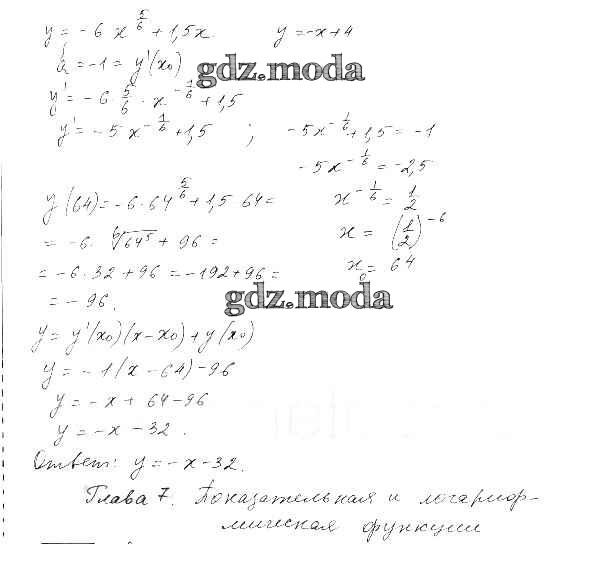 y = -6 x^{5/6} + 1,5x    y = -x + 4
a = -1 = y'(x₀)
gdz.moda
y' = -6 5/6 · x^{-1/6} + 1,5
y' = -5x^{-1/6} + 1,5 ; -5x^{-1/6} + 1,5 = -1
-5x^{-1/6} = -2,5
y(64) = -6·64^{5/6} + 1,5 64 =    x^{-1/6} = 1/2
= -6· ⁶√64⁵ + 96 =    x = (1/2)^{-6}
= -6·32 + 96 = -192 + 96 =    x₀ = 64
= -96.
gdz.moda
y = y'(x₀)(x - x₀) + y(x₀)
y = -1(x - 64) - 96
y = -x + 64 - 96
y = -x - 32.
Ответ: y = -x - 32.
Глава 7. Показательная и логариф-
мическая функции